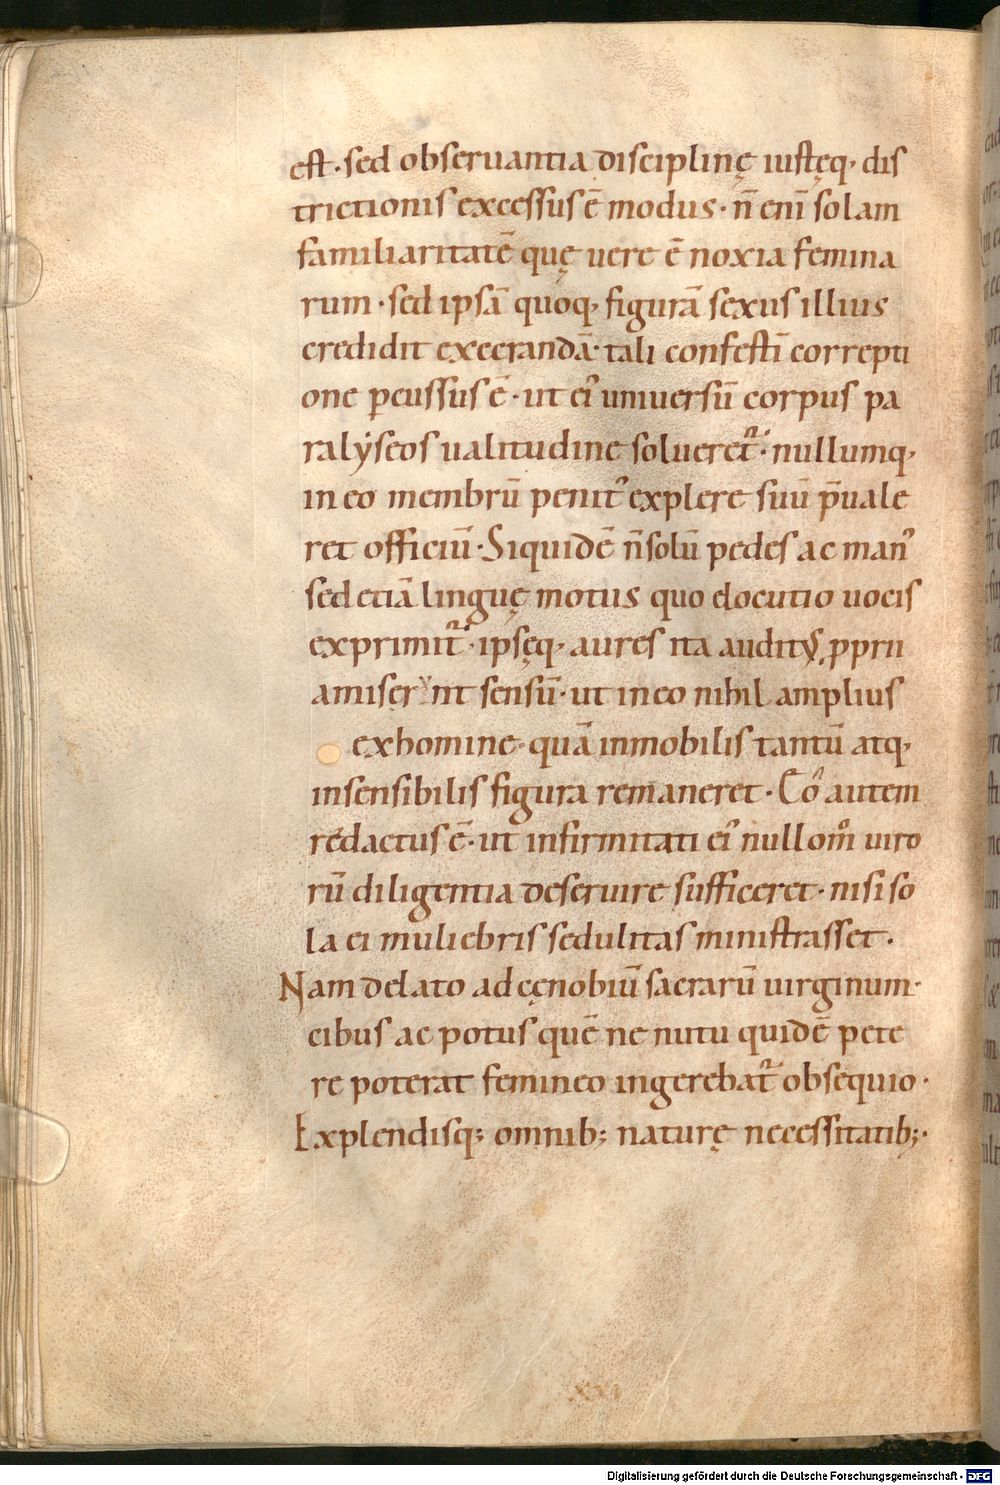 est· sed obseruantia disciplinę iustęq· dis
trictionis excessus ē modus· n̄ enī solam
familiaritatē quę uere ē noxia femina
rum· sed ipsā quoq· figurā sexus illius
credidit execrandā· tali confestī correpti
one ꝑcussus ē· ut ei᾽ uniuersū corpus pa
ralẏseos ualitudine solueret᷑· nullumq·
in eo membrū penit᾽ explere suū p̄uale
ret officiū· Siquidē n̄ solū pedes ac man᾽
sed etiā linguę motus quo elocutio uocis
exprimit᷑· ipsęq· aures ita auditꝰ ꝓprii
amiserunt sensū· ut in eo nihil amplius
ex homine· quā inmobilis tantū atq·
insensibilis figura remaneret· Co᾽ autem
redactus ē· ut infirmitati ei᾽ nullom̊ uiro
rū diligentia deseruire sufficeret· nisi so
la ei muliebris sedulitas ministrasset·
Nam delato ad cęnobiū sacrarū uirginum·
cibus ac potus quē ne nutu quidē pete
re poterat femineo ingerebat᷑ obsequio·
Explendisq; omnib; naturę necessitatib;·
XXI
Digitalisierung gefördert durch die Deutsche Forschungsgemeinschaft - DFG